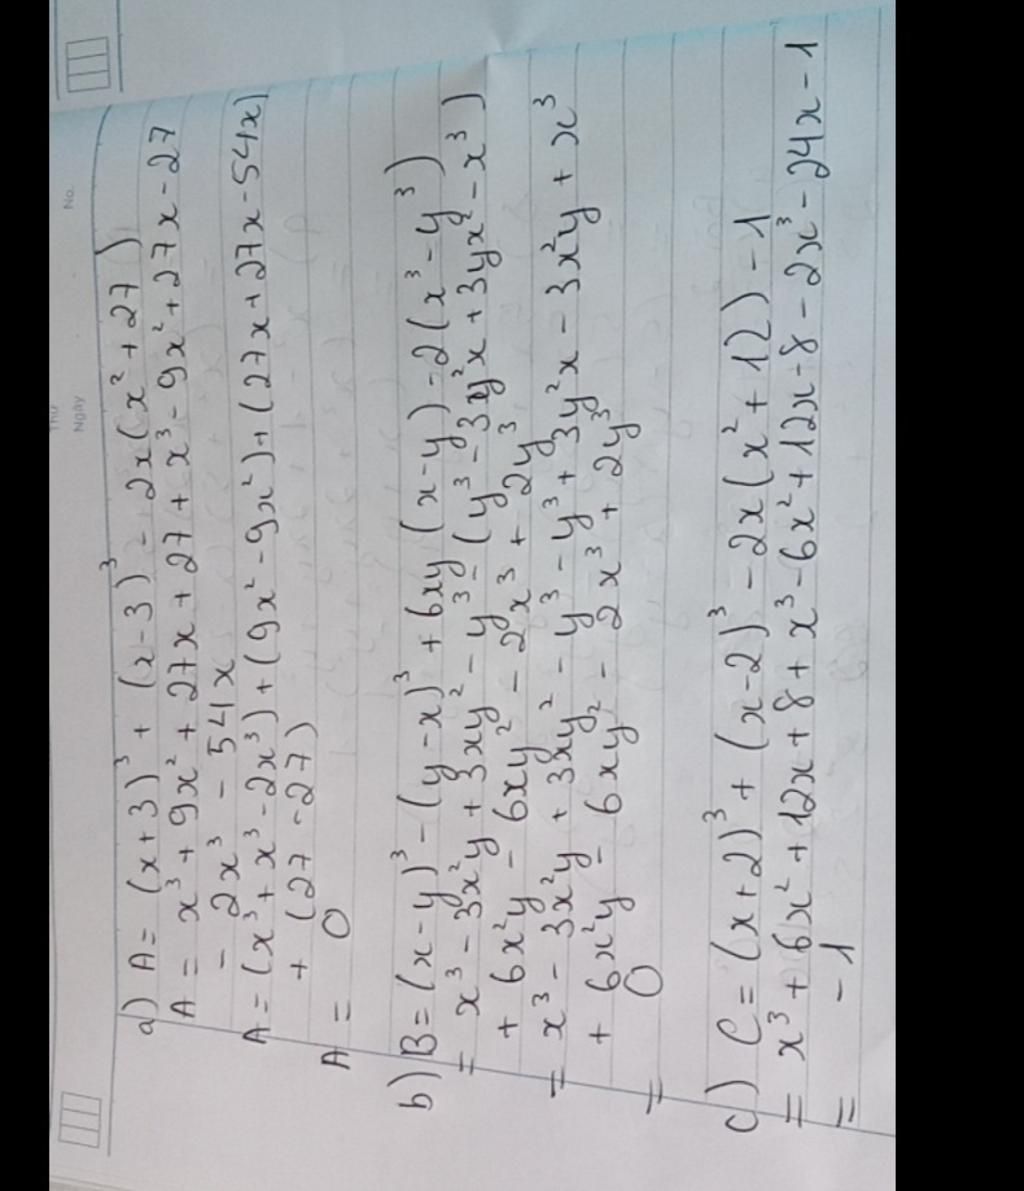 Thứ
Ngày
No.
a) A = (x+3)³ + (x-3)³ - 2x(x²+27)
A = x³ + 9x² + 27x + 27 + x³ - 9x² + 27x - 27
- 2x³ - 54x
A = (x³ + x³ - 2x³) + (9x² - 9x²) + (27x + 27x - 54x)
+ (27 - 27)
A = 0
b) B = (x-y)³ - (y-x)³ + 6xy (x-y) - 2(x³-y³)
= x³ - 3x²y + 3xy² - y³ - (y³ - 3y²x + 3yx² - x³)
+ 6x²y - 6xy² - 2x³ + 2y³
= x³ - 3x²y + 3xy² - y³ - y³ + 3y²x - 3x²y + x³
+ 6x²y - 6xy² - 2x³ + 2y³
= 0
c) C = (x+2)³ + (x-2)³ - 2x(x²+12) - 1
= x³ + 6x² + 12x + 8 + x³ - 6x² + 12x - 8 - 2x³ - 24x - 1
= - 1